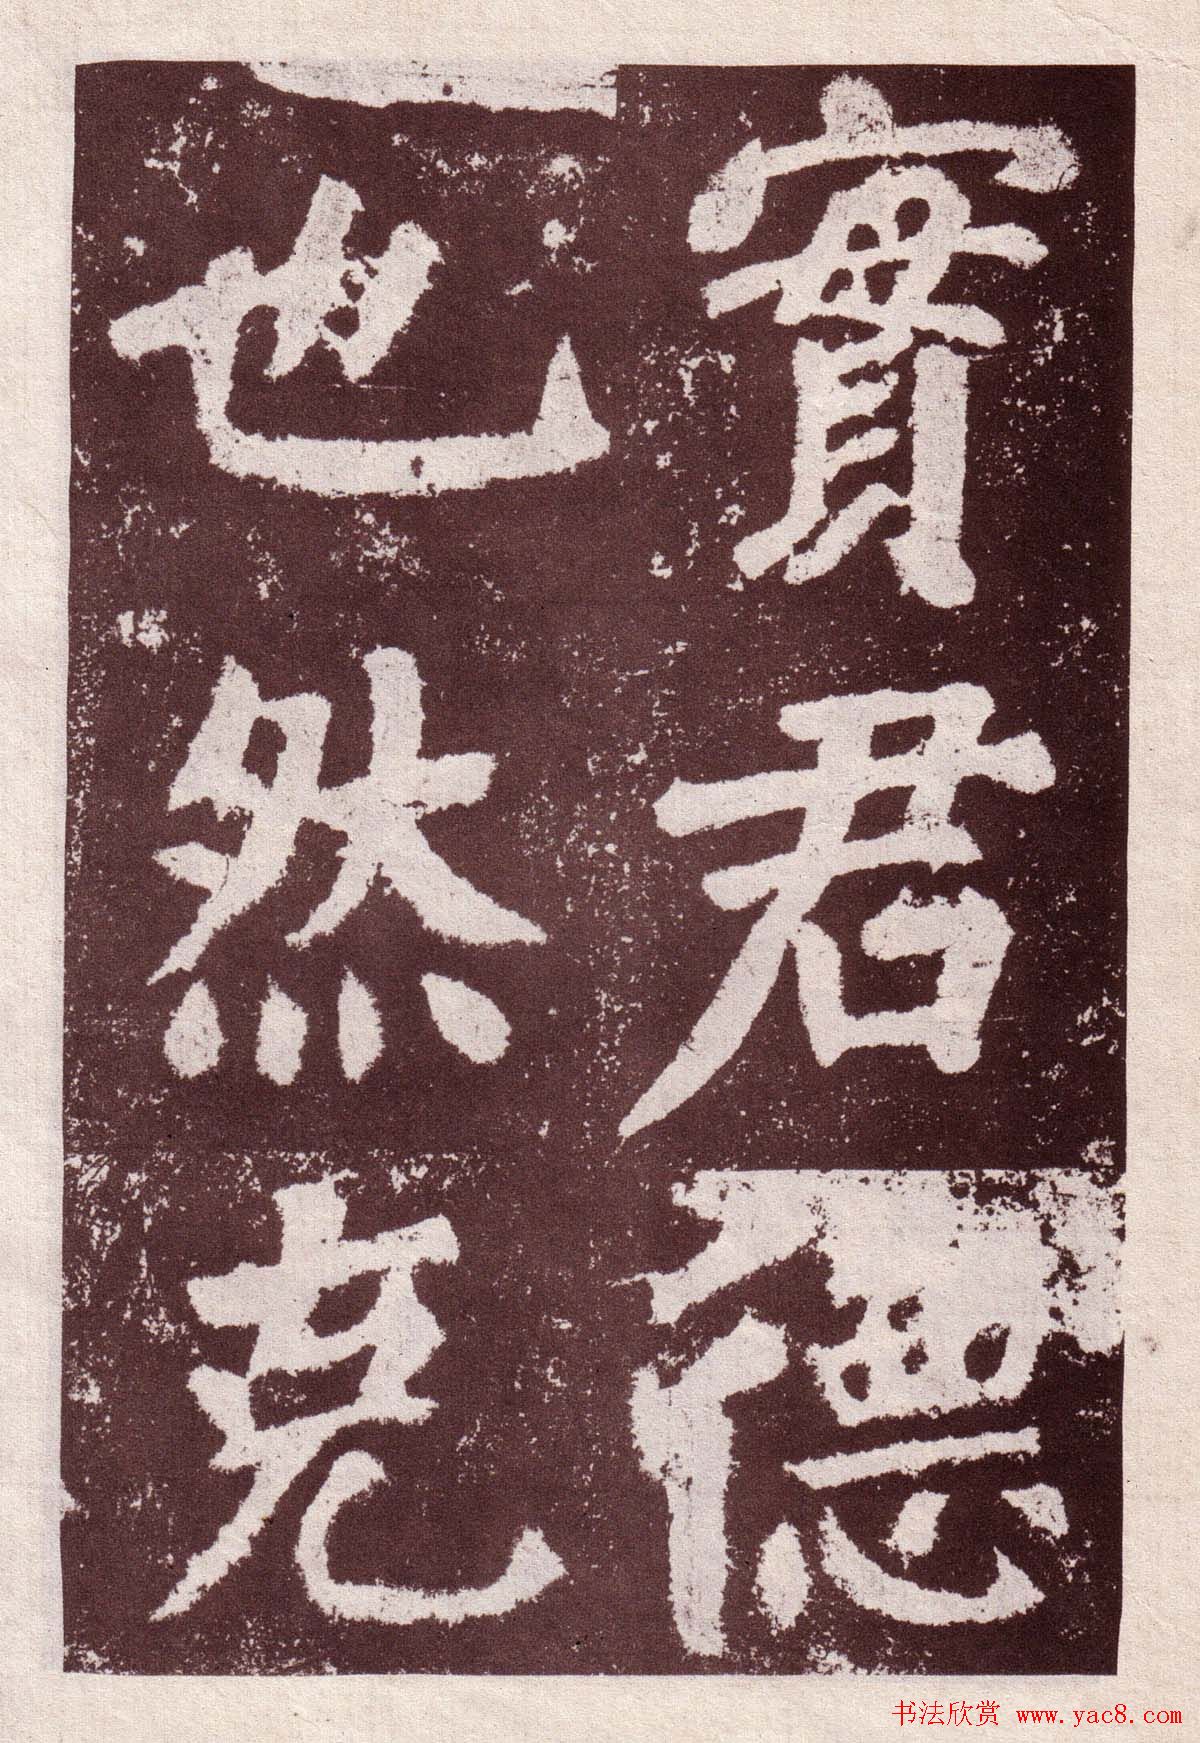 實君德
也然克
书法欣赏 www.yac8.com